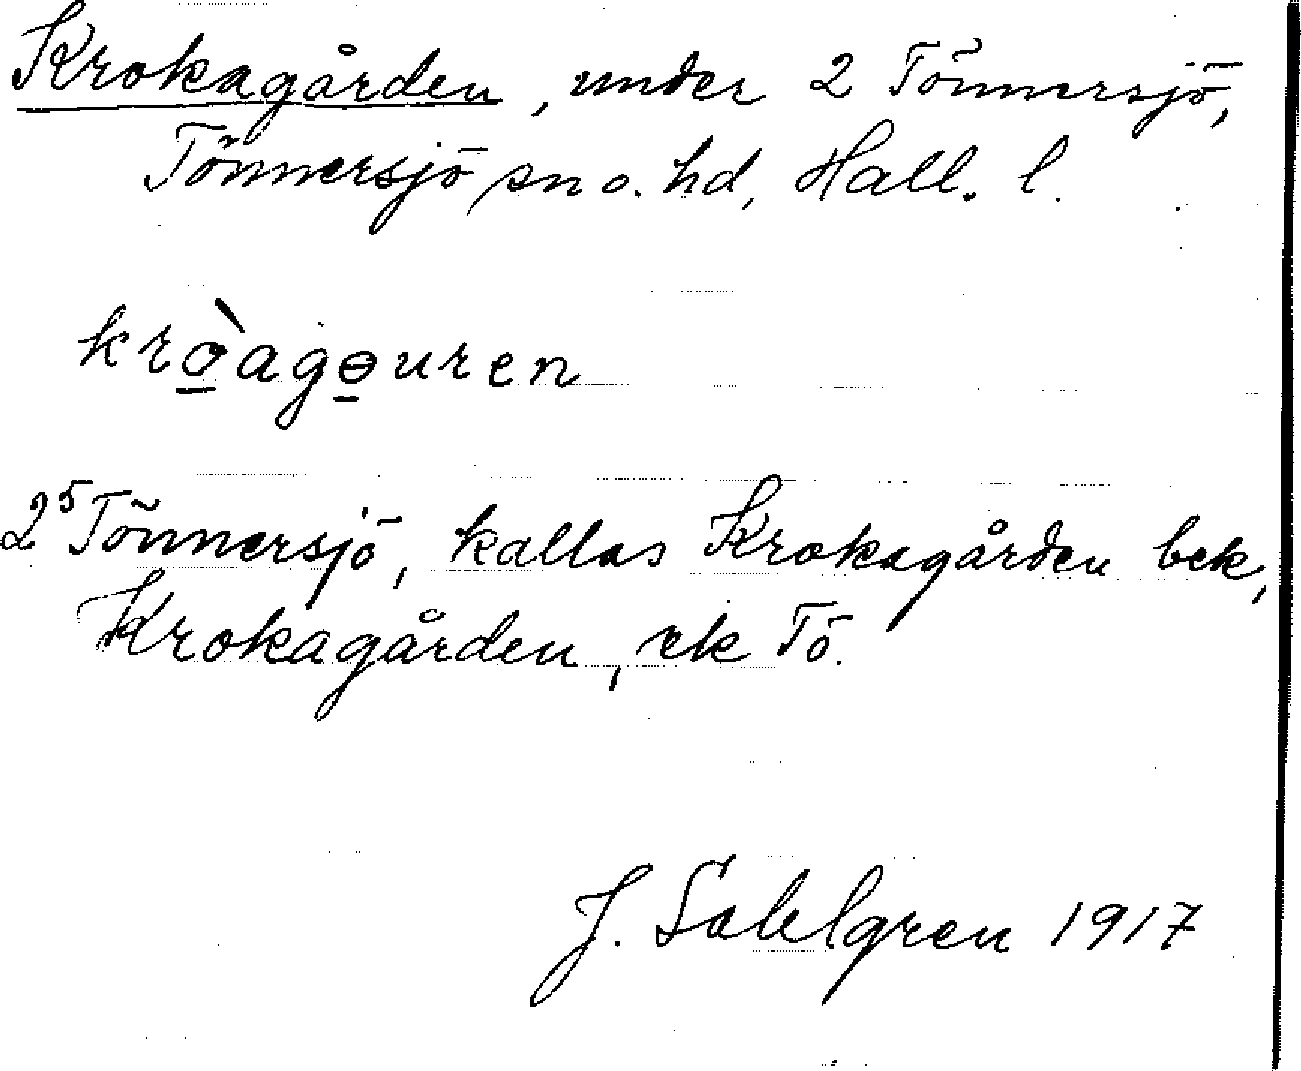 Krokagården, under 2 Tönnersjö,
Tönnersjö sn o. hd, Hall. l.
krò̱agɵ̱uren
2⁵ Tönnersjö, kallas Krokagården bek,
Krokagården, ek Tö.
J. Sahlgren 1917